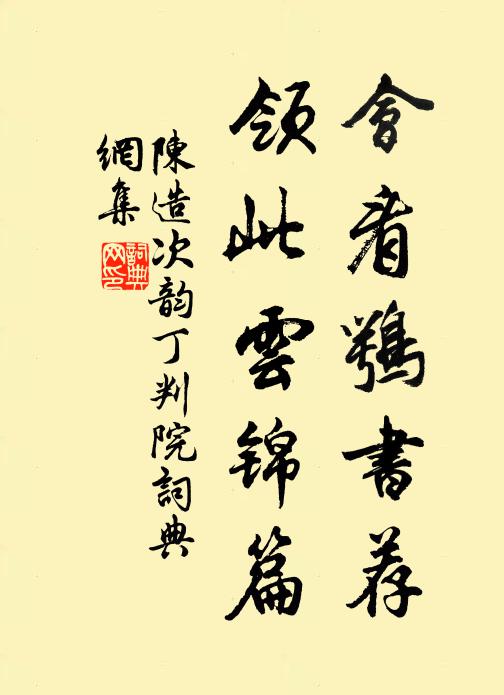 會看鶚書荐
領此雲錦篇
陳造次韵丁判院詞典
網集
詞典網印